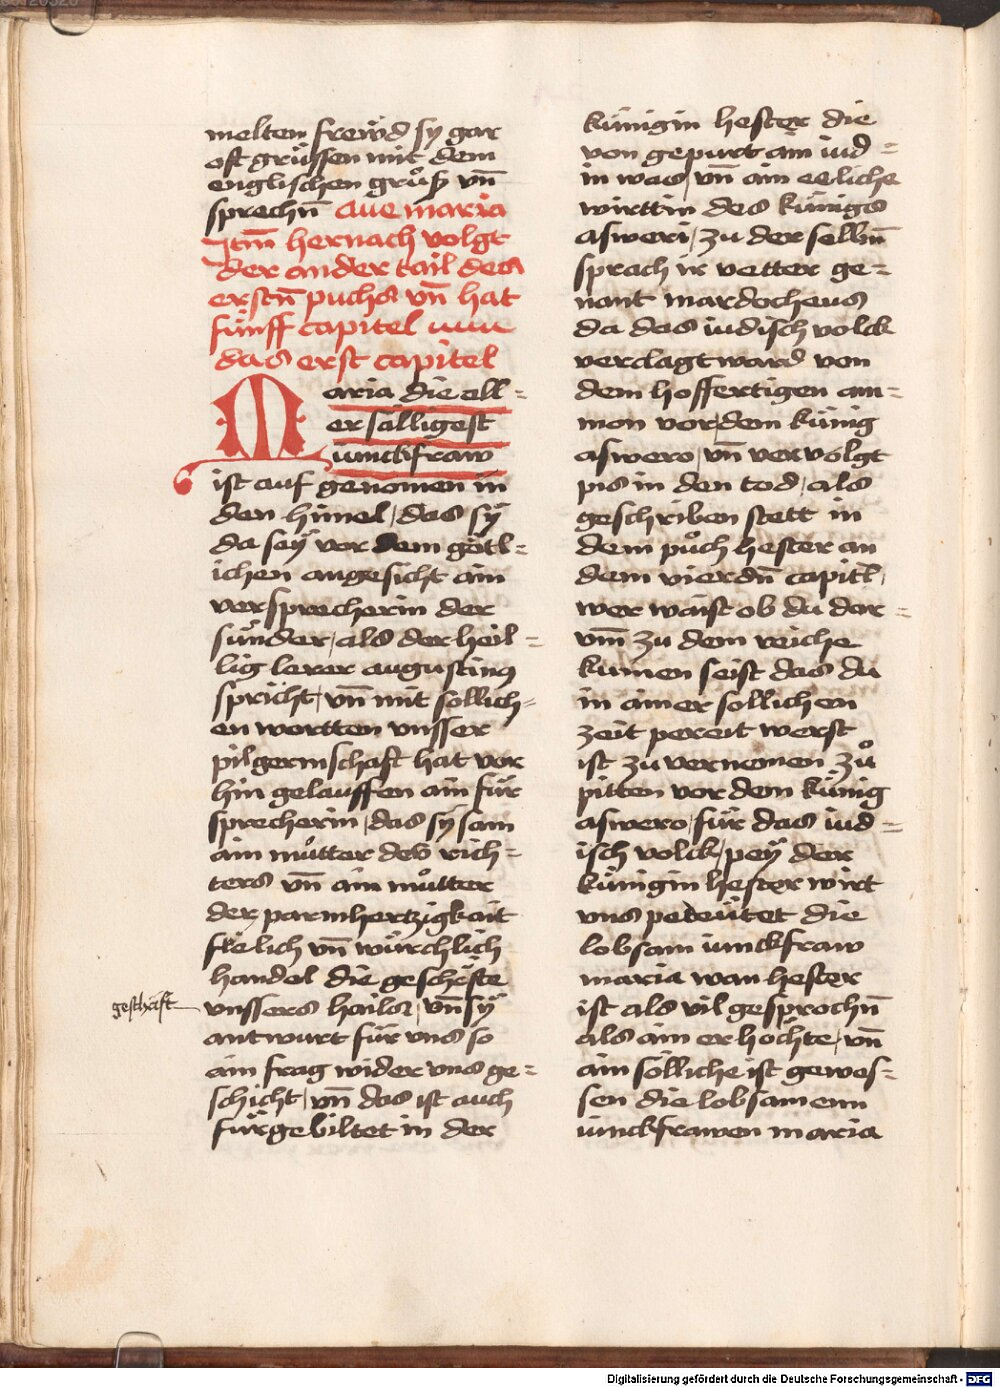 melten freẅd sy gar
oft grüssen mit dem
englischen gruͦß vn̄
sprechn̄ aue maria
Itm̄ hernach volgt
der ander tail des
erstn̄ puchs vn̄ hat
fünff capitel
das erst capitel
Maria die all=
er sälligest
iunckfraw
ist auf genomen in
den himel / das sÿ
da seÿ vor dem götl=
ichen angesicht ain
versprecherin der
sünder / als der heil=
lig lerer augustinꝰ
spricht / vn̄ mit söllich=
en wortten vnsser
pilgerinschaft hat vor
hin gelauffen ain für
sprecherin / das sÿ sam
ain muͦtter des rich=
ters vn̄ ain muͦtter
der parmhertzigkait
flëlich vn̄ würchlich
handel die geschëfte
geschäft
vnssers hails / vn̄ sÿ
antwurt für vns so
ain frag wider vns ge=
schicht / vn̄ das ist auch
fürgebiltet in der
künigin hester die
von gepurt ain iud=
in was / vn̄ ain eeliche
wirttin des küniges
asweri / zu der selbn̄
sprach ir vetter ge=
nant mardocheus
da das iudisch volck
verclagt ward von
dem hoffertigen am=
mon vor dem künig
aswero / vn̄ vervolgt
pis in den tod / als
geschriben stett in
dem puͦch hester an
dem vierdn̄ capitl /
wer waist ob du dar=
vm̄ zu dem reiche
kumen seist das du
in ainer sollichen
zeit pereit werst
ist zu vernemen zuͦ
pitten vor dem künig
aswero / für das iud=
isch volck / peÿ der
künigin hester wirt
vns pedeütet die
lobsam iunckfraw
maria wan hester
ist als vil gesprochn̄
als ain erhöchte / vn̄
ain sölliche ist gewes=
sen die lobsamenn
iunckfrawen maria
Digitalisierung gefördert durch die Deutsche Forschungsgemeinschaft - DFG